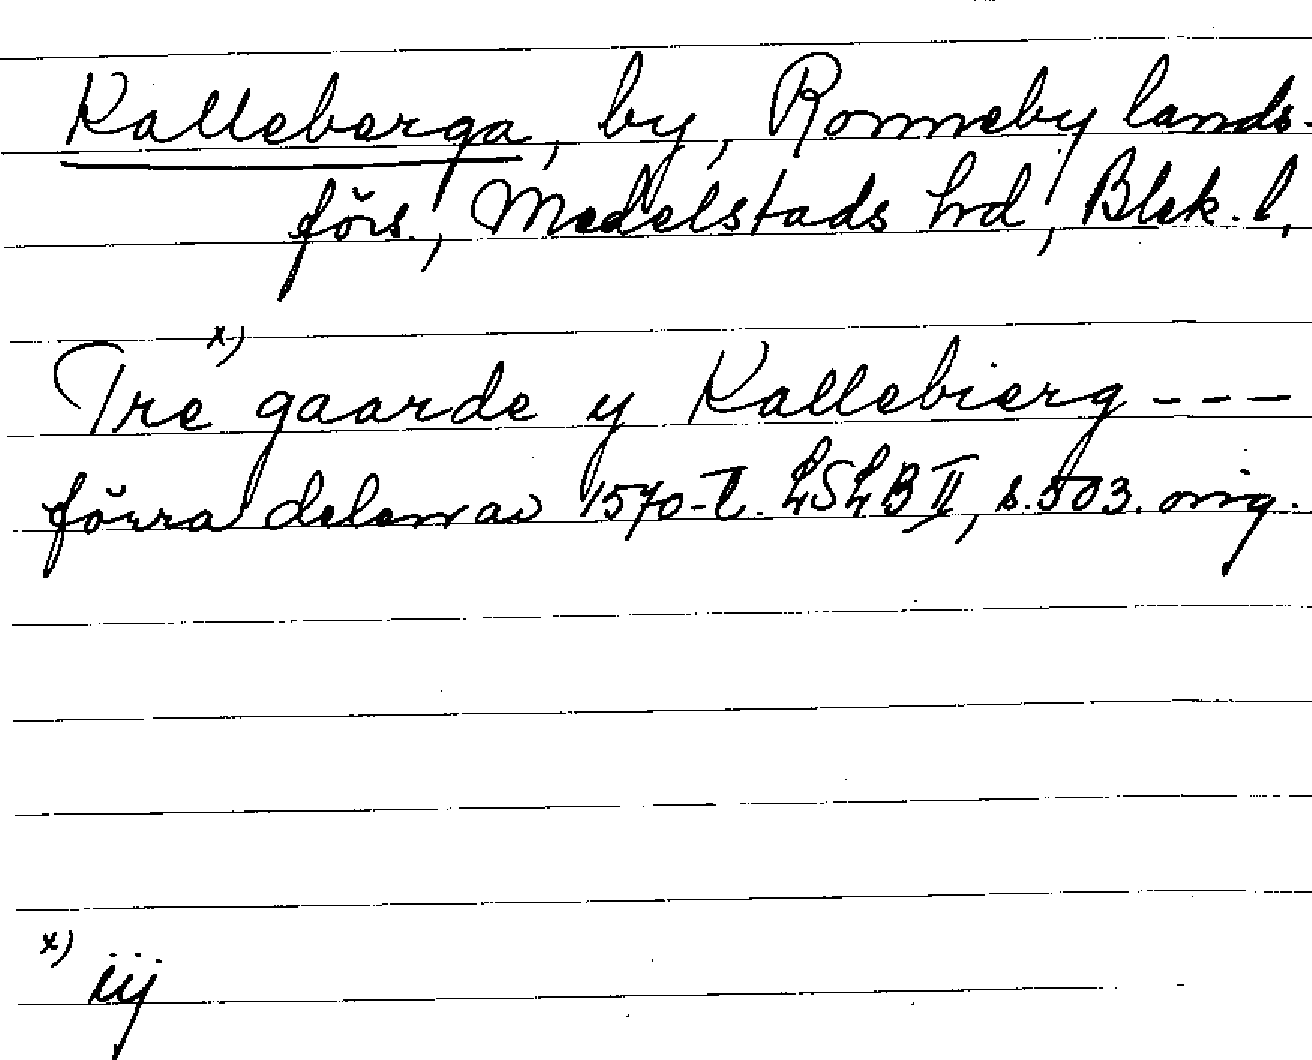 Kalleberga, by, Ronneby lands-
förs., Medelstads hrd, Blek. l.
x)
Tre gaarde y Kallebierg ---
förra delen av 1570-t. LSLB II, s. 503. orig.
x) iij